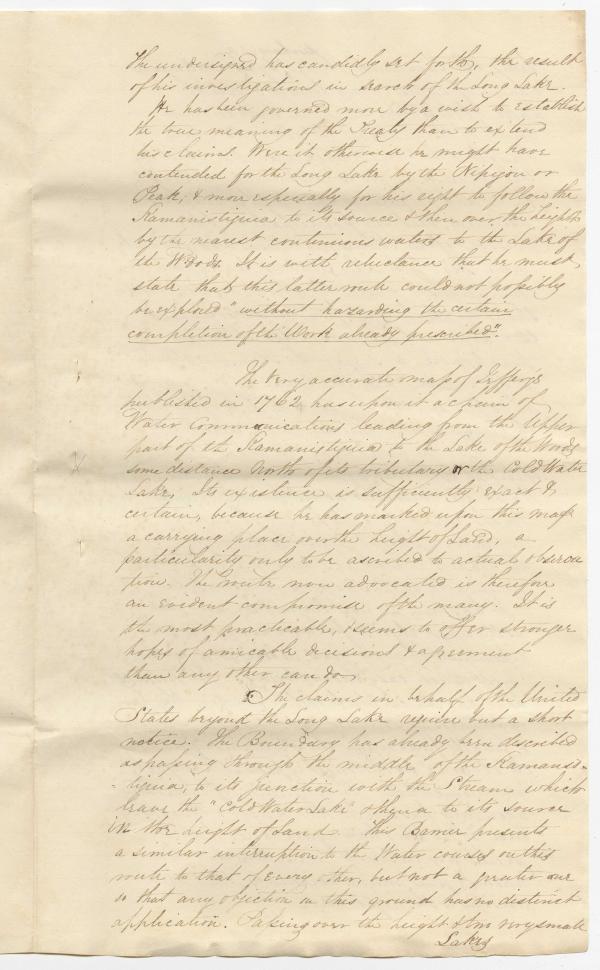 The undersigned has candidly set forth, the result
of his investigations in search of the Long Lake.
He has been governed more by a wish to establish
the true meaning of the Treaty than to extend
his claims. Were it otherwise he might have
contended for the Long Lake by the Nipigon or
Peak, & more especially for his right to follow the
Kamanistiquia to its source & then over the heights
by the nearest continuous waters to the Lake of
the Woods. It is with reluctance that he must
state that this latter route could not possibly
be explored "without hazarding the certain
completion of the Work already prescribed".
The very accurate map of Jefferys
published in 1762 has upon it a chain of
Water Communications leading from the Upper
part of the Kamanistiquia to the Lake of the Woods
some distance North of its tributary or the Cold Water
Lake, Its existence is sufficiently exact &
certain, because he has marked upon this map
a carrying place over the height of Land, a
particularity only to be ascribed to actual observa
tion. The route now advocated is therefore
an evident compromise of the many. It is
the most practicable, & seems to offer stronger
hopes of amicable decisions & agreement
than any other can do.
The claims in behalf of the United
States beyond the Long Lake require but a short
notice. The Boundary has already been described
as passing through the middle of the Kamanis-
-tiquia, to its junction with the Stream which
leave the "Cold Water Lake" & to its source
in the height of Land. This Barrier presents
a similar interruption to the Water courses on this
route to that of every other, but not a greater one
so that any objection on this ground has no distinct
application. Passing over the height & two very small
Lakes